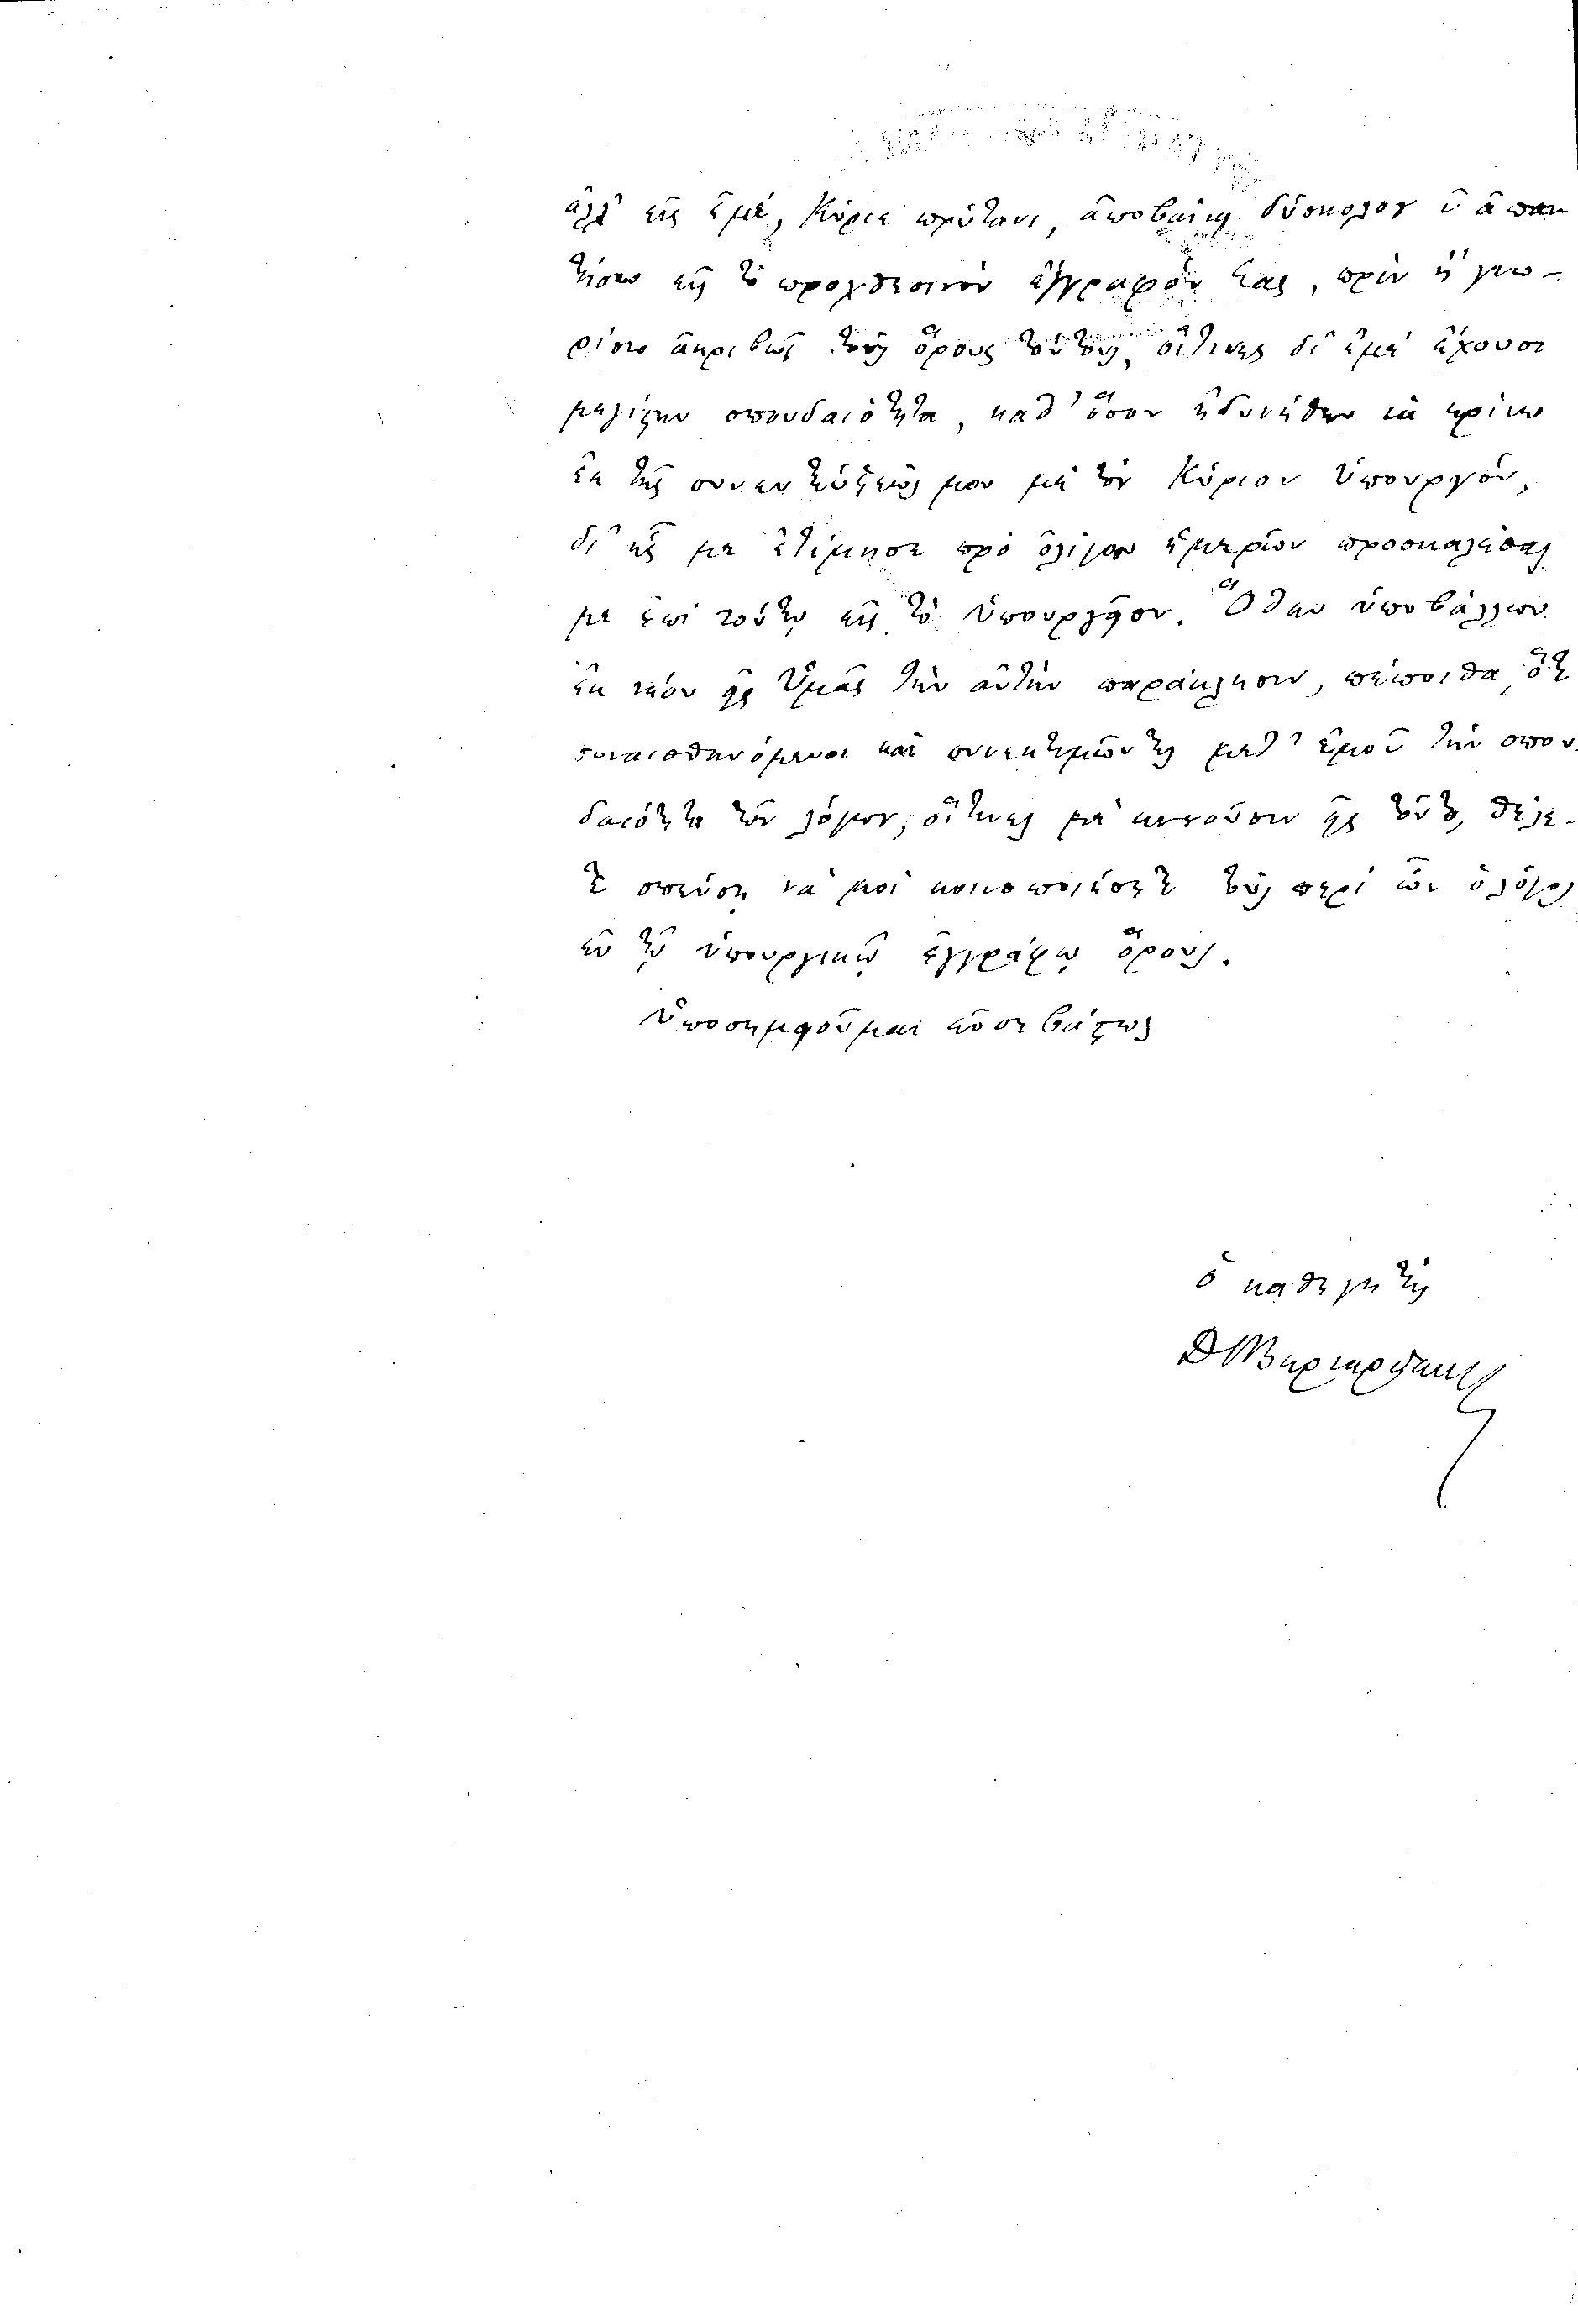 ἀλλ' εἰς ἐμέ, Κύριε πρύτανι, ἀποβαίνει δύσκολον ν' ἀπαν
τήσω εἰς τὸ προχθεσινὸν ἔγγραφόν Σας, πρὶν ἢ γνω-
ρίσω ἀκριβῶς τοὺς ὅρους τούτους, οἵτινες δι' ἐμὲ ἔχουσι
μεγίστην σπουδαιότητα, καθ' ὅσον ἠδυνήθην νὰ κρίνω
ἐκ τῆς συνεντεύξεώς μου μὲ τὸν Κύριον Ὑπουργόν,
δι' ἧς με ἐτίμησε πρὸ ὀλίγων ἡμερῶν προσκαλέσας
με ἐπὶ τούτῳ εἰς τὸ Ὑπουργεῖον. Ὅθεν ὑποβάλλων
ἐκ νέου εἰς Ὑμᾶς τὴν αὐτὴν παράκλησιν, πέποιθα, ὅτι
συναισθανόμενοι καὶ συνεκτιμῶντες μετ' ἐμοῦ τὴν σπου
δαιότητα τῶν λόγων, οἵτινες με κινοῦσιν εἰς τοῦτο, θέλε-
τε σπεύσει νὰ μοὶ κοινοποιήσετε τοὺς περὶ ὧν ὁ λόγος
ἐν τῷ ὑπουργικῷ ἐγγράφῳ ὅρους.
Ὑποσημειοῦμαι εὐσεβάστως
ὁ καθηγητὴς
ΔΒερναρδάκης